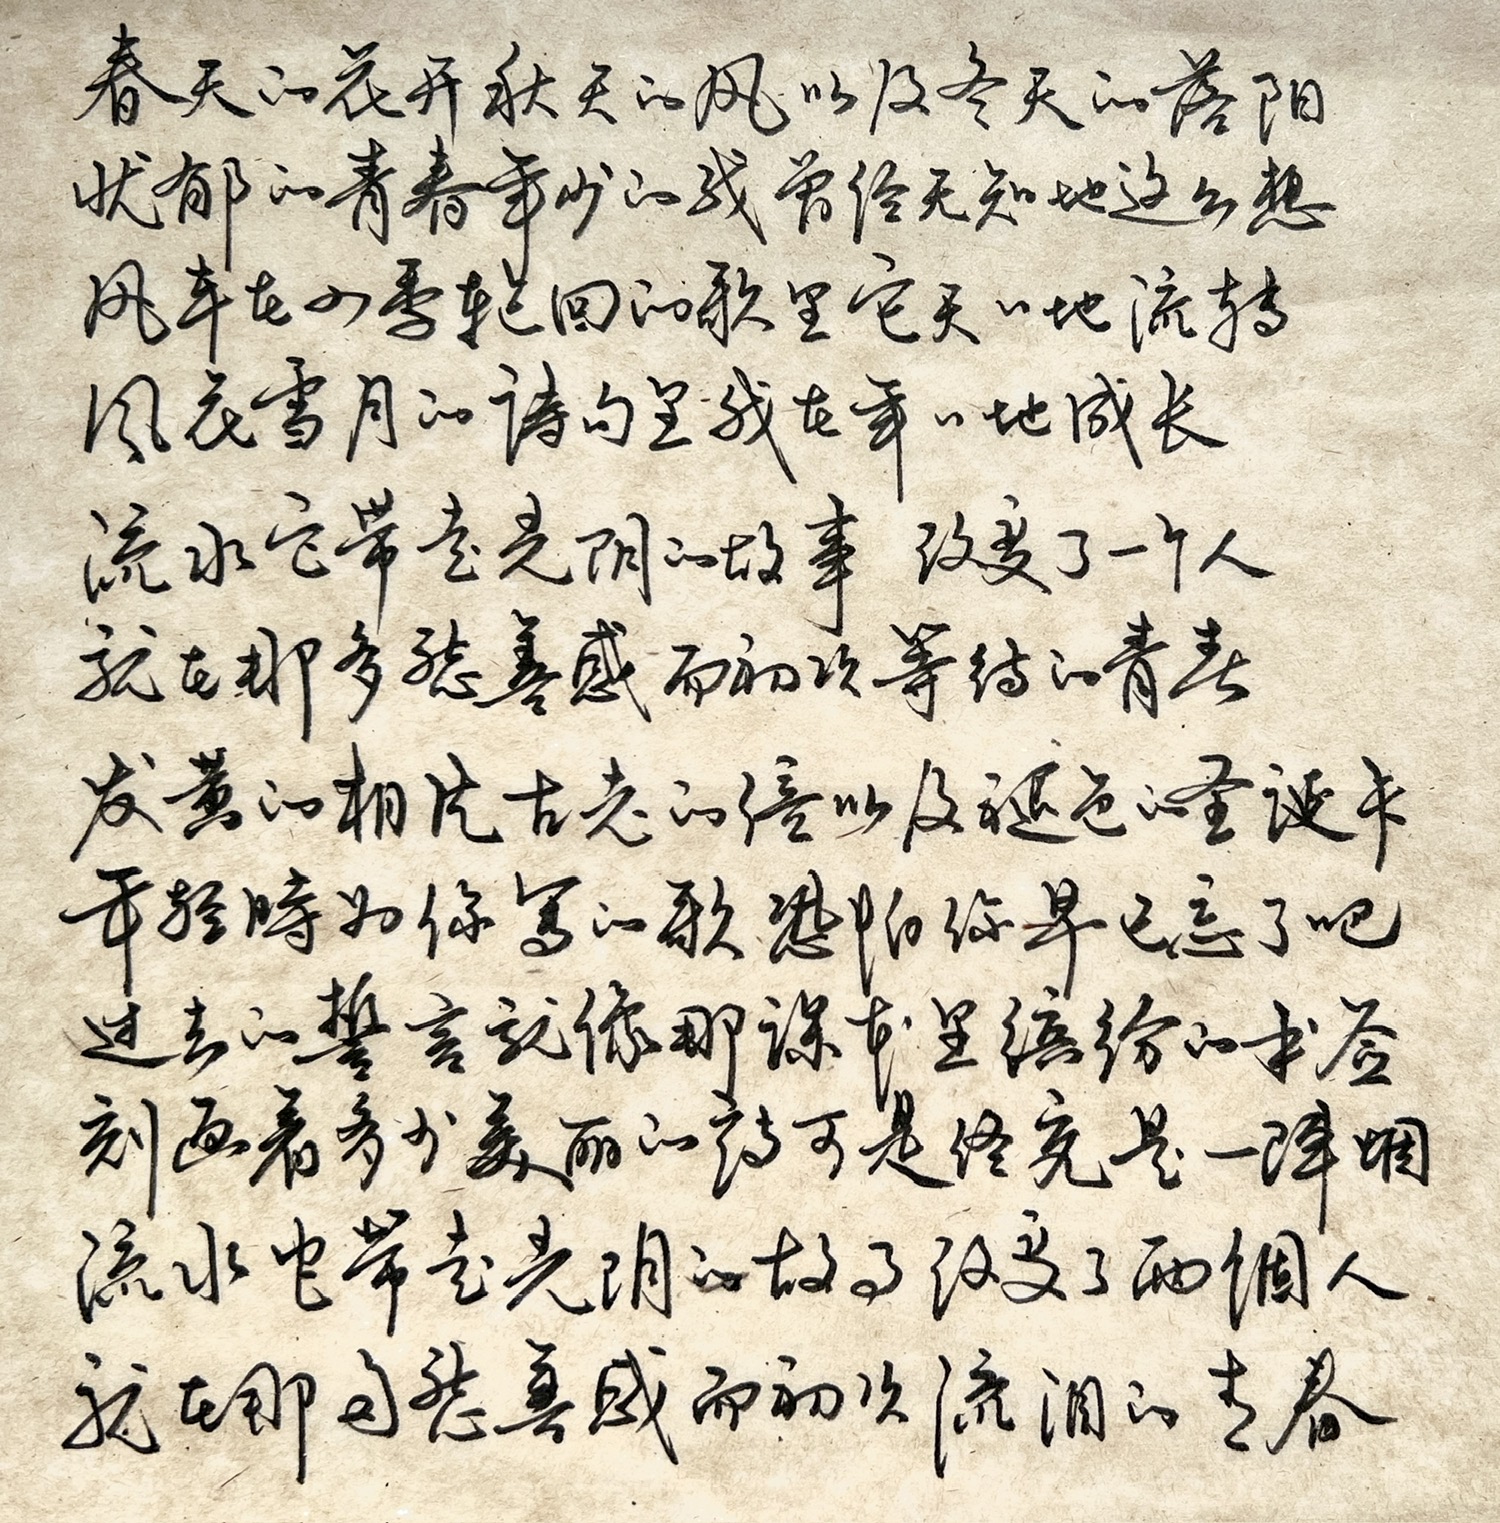 春天的花开秋天的风以及冬天的落阳
忧郁的青春年少的我曾经无知地这么想
风车在四季轮回的歌里它天〃地流转
风花雪月的诗句里我在年〃地成长
流水它带走光阴的故事 改变了一个人
就在那多愁善感而初次等待的青春
发黄的相片古老的信以及褪色的圣诞卡
年轻時为你写的歌恐怕你早已忘了吧
过去的誓言就像那课本里缤纷的书签
刻画着多少美丽的诗可是终究是一阵烟
流水它带走光阴的故事改变了两個人
就在那多愁善感而初次流泪的青春